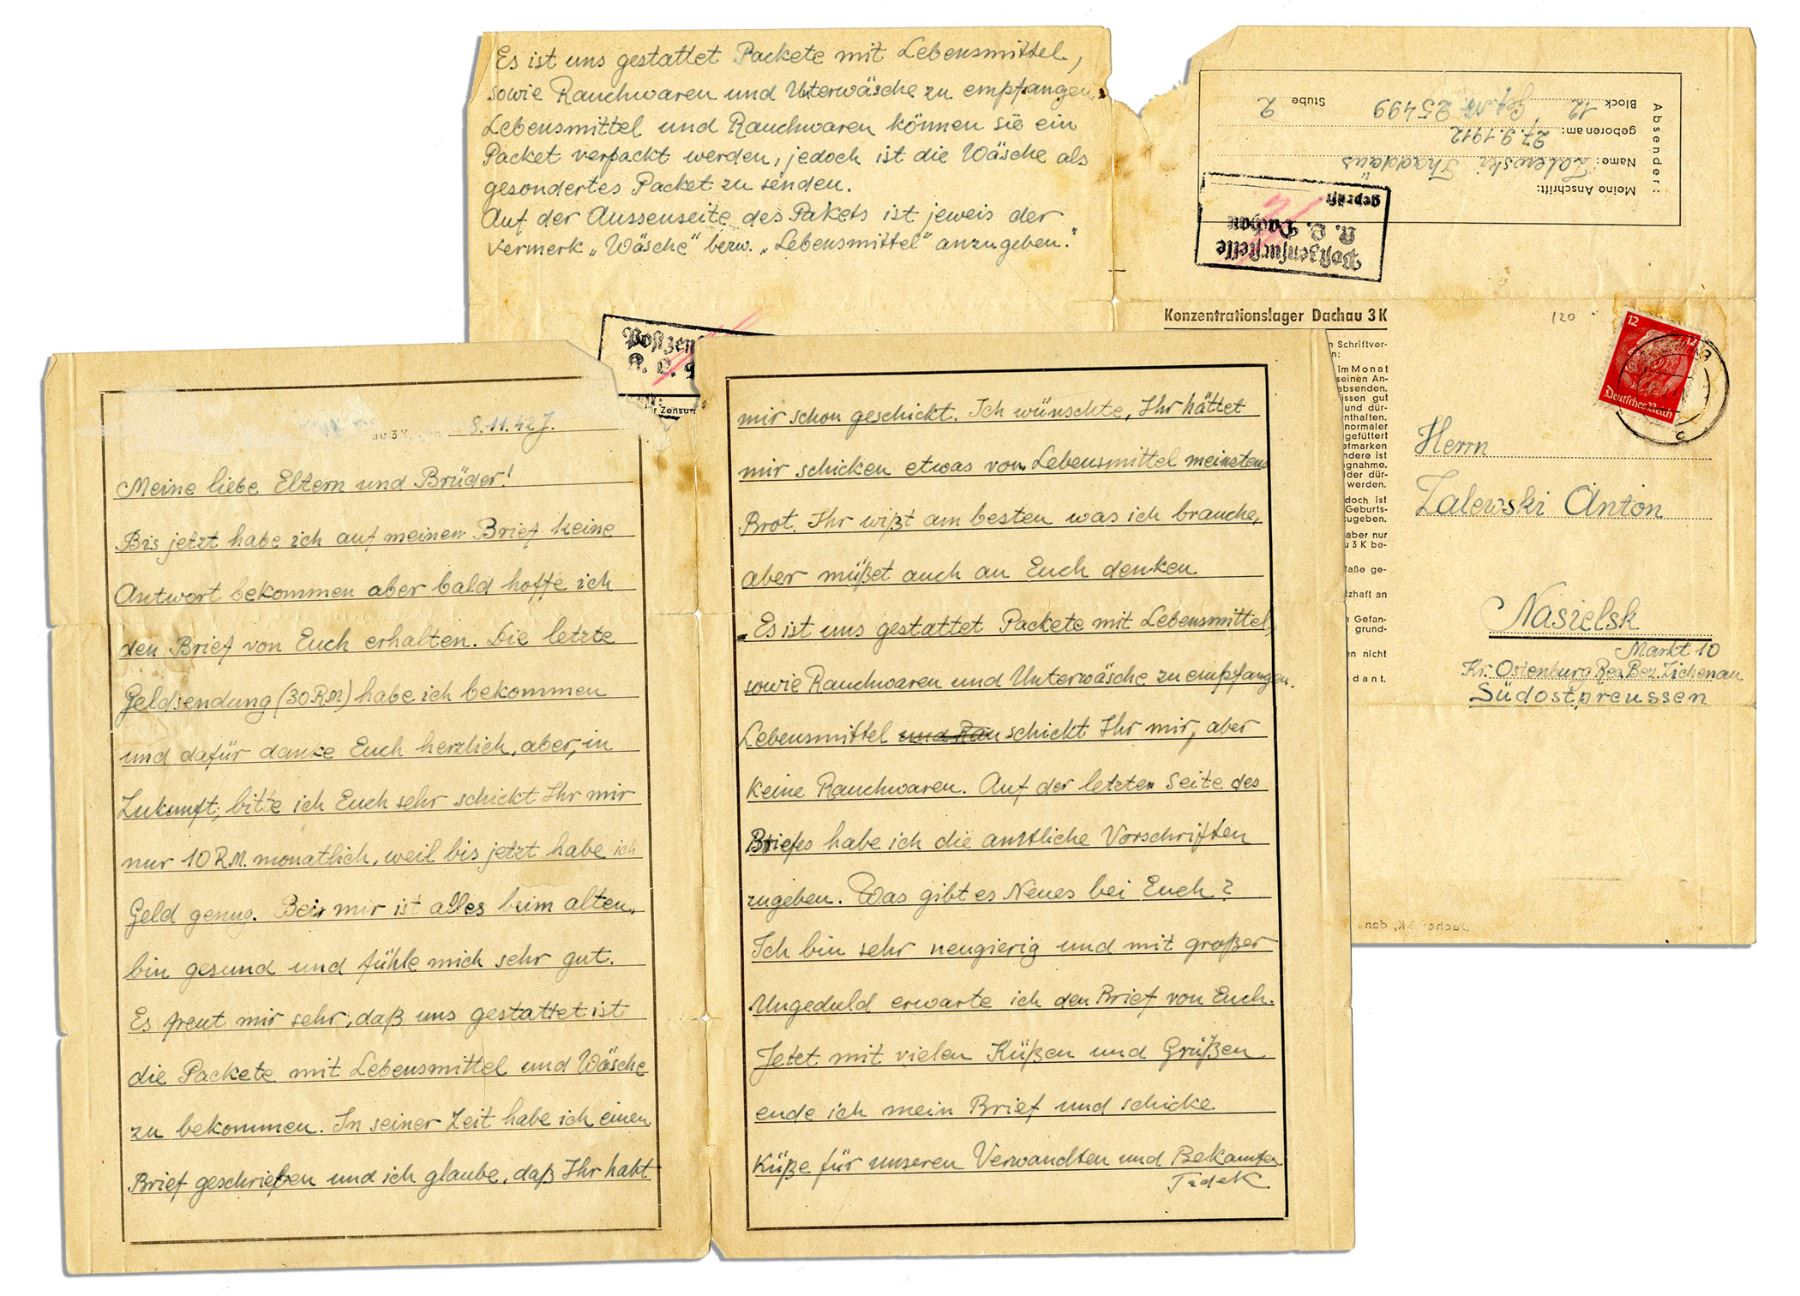 Es ist uns gestattet Packete mit Lebensmittel,
sowie Rauchwaren und Unterwäsche zu empfangen.
Lebensmittel und Rauchwaren können sie ein
Packet verpackt werden, jedoch ist die Wäsche als
gesondertes Packet zu senden.
Auf der Aussenseite des Pakets ist jeweis der
vermerk „Wäsche" bezw. „Lebensmittel" anzugeben."
Absender:
Meine Anschrift:
Name: Zalewski Thaddäus
geboren am: 27.9.1912
Block 12 Gef. Nr. 25499 Stube 2
Postzensurstelle
K. L. Dachau
geprüft
Postzen
K. L.
r Zensur
Konzentrationslager Dachau 3 K
120
12 12
Deutsches Reich
n Schriftver-
n:
im Monat
seinen An-
absenden.
issen gut
und dür-
nthalten.
normaler
gefüttert
efmarken
ndere ist
gnahme.
lder dür-
werden.
doch ist
Geburts-
zugeben.
aber nur
u 3 K be-
laße ge-
tzhaft an
n Gefan-
grund-
en nicht
dant.
Herrn
Zalewski Anton
Nasielsk
Markt 10
Kr. Ostenburg Reg. Bez. Zichenau
Südostpreussen
Dachau 3 K, den
au 3 K, den 8.11.42 J.
Meine liebe Eltern und Brüder!
Bis jetzt habe ich auf meinen Brief keine
Antwort bekommen aber bald hoffe ich
den Brief von Euch erhalten. Die letzte
Geldsendung (30 RM) habe ich bekommen
und dafür danke Euch herzlich, aber, in
Zukunft, bitte ich Euch sehr schickt Ihr mir
nur 10 RM. monatlich, weil bis jetzt habe ich
Geld genug. Bei mir ist alles beim alten,
bin gesund und fühle mich sehr gut.
Es freut mir sehr, daß uns gestattet ist
die Packete mit Lebensmittel und Wäsche
zu bekommen. In seiner Zeit habe ich einen
Brief geschrieben und ich glaube, daß Ihr habt
mir schon geschickt. Ich wünschte, Ihr hättet
mir schicken etwas von Lebensmittel meinstens
Brot. Ihr wißt am besten was ich brauche,
aber müßet auch an Euch denken
„Es ist uns gestattet Packete mit Lebensmittel,
sowie Rauchwaren und Unterwäsche zu empfangen.
Lebensmittel und Rau schickt Ihr mir, aber
keine Rauchwaren. Auf der letzten Seite des
Briefes habe ich die amtliche Vorschriften
zugeben. Was gibt es Neues bei Euch?
Ich bin sehr neugierig und mit großer
Ungeduld erwarte ich den Brief von Euch.
Jetzt mit vielen Küßen und Grüßen
ende ich mein Brief und schicke
Küße für unseren Verwandten und Bekanten
Tadek